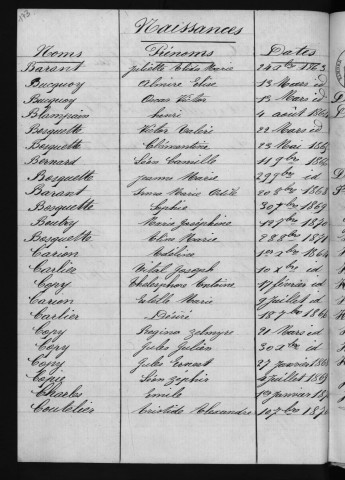 Naissances
Noms Prénoms Dates
Barant Juliette Elisa Marie 24 1863
Bucquoy Almire Elise 13 Mars id
Bucquoy Oscar Victor 13 Mars id
Blampain henri 4 août 1864
Bosquette Victor Valéri 22 Mars id
Bosquette Clémentine 23 Mai 1865
Bernard Léon Camille 11 9bre
Bosquette Jeanne Marie 29 9bre id
Barant Marie 20 8bre
Bosquette Sophie 30 7bre
Boutry Marie Joséphine 1870
Bosquette Elina Marie 28 8bre 1871
Carion Adeline 1864
Cartier Vital Joseph 10 Xbre id
Copy Antoine 17 février id
Carion Estelle Marie 9 Juillet id
Cartier Désiré 18 7bre
Copy Regina Zelmyre 21 Mars id
Copy Jules Julien 30 Xbre id
Copy Jules Ernest 27 Janvier
Copie Léon Zéphir Juillet
Charles Emile Janvier
Coutelier Aristide Alexandre 10 7bre